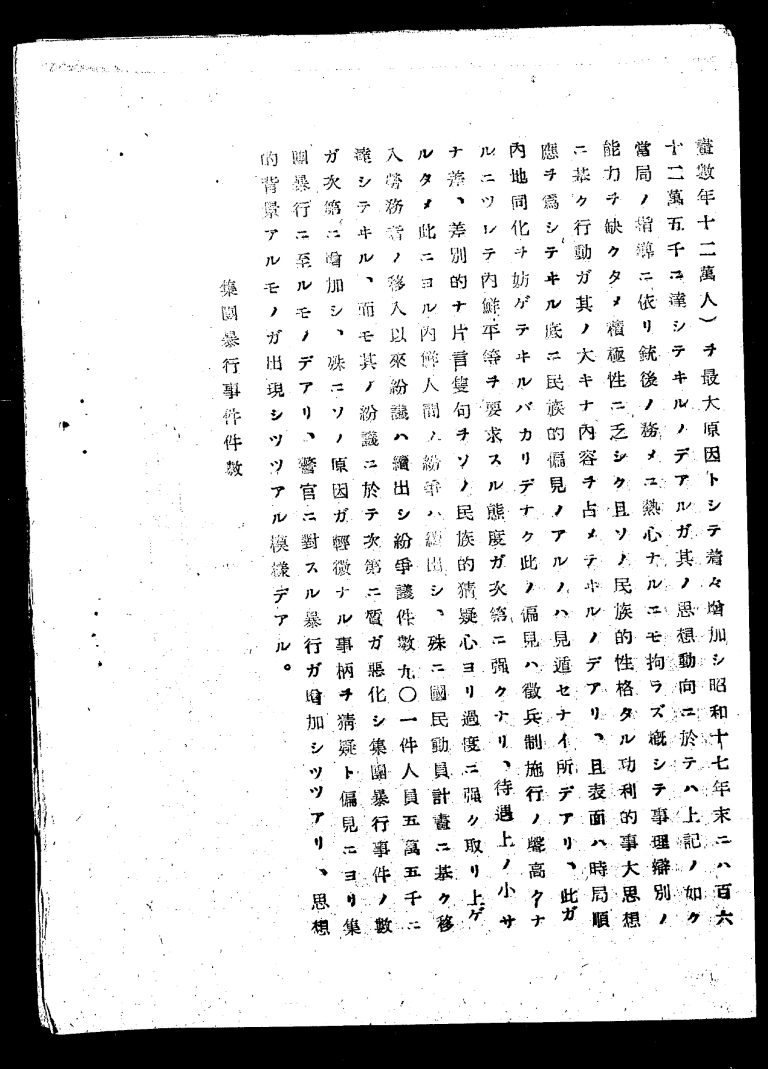 畫數年十二萬人)ヲ最大原因トシテ着々增加シ昭和十七年末ニハ百六
十二萬五千ニ達シテヰルノデアルガ其ノ思想動向ニ於テハ上記ノ如ク
當局ノ指導ニ依リ銃後ノ務メニ熱心ナルニモ拘ラズ概シテ事理辯別ノ
能力ヲ缺クタメ積極性ニ乏シク且ソノ民族的性格タル功利的事大思想
ニ基ク行動ガ其ノ大キナ內容ヲ占メテヰルノデアリ、且表面ハ時局順
應ヲ爲シテヰル底ニ民族的偏見ノアルノハ見遁セナイ所デアリ、此ガ
內地同化ヲ妨ゲテヰルバカリデナク此ノ偏見ハ徵兵制施行ノ聲高クナ
ルニツレテ內鮮平等ヲ要求スル態度ガ次第ニ强クナリ、待遇上ノ小サ
ナ差、差別的ナ片言隻句ヲソノ民族的猜疑心ヨリ過度ニ强ク取リ上ゲ
ルタメ此ニヨル內鮮人間ノ紛爭ハ續出シ、殊ニ國民動員計畫ニ基ク移
入勞務者ノ移入以來紛議ハ續出シ紛爭議件數九〇一件人員五萬五千ニ
達シテヰル、而モ其ノ紛議ニ於テ次第ニ質ガ惡化シ集團暴行事件ノ數
ガ次第ニ增加シ、殊ニソノ原因ガ輕微ナル事柄ヲ猜疑ト偏見ニヨリ集
團暴行ニ至ルモノデアリ、警官ニ對スル暴行ガ增加シツツアリ、思想
的背景アルモノガ出現シツツアル模樣デアル。
集團暴行事件件數